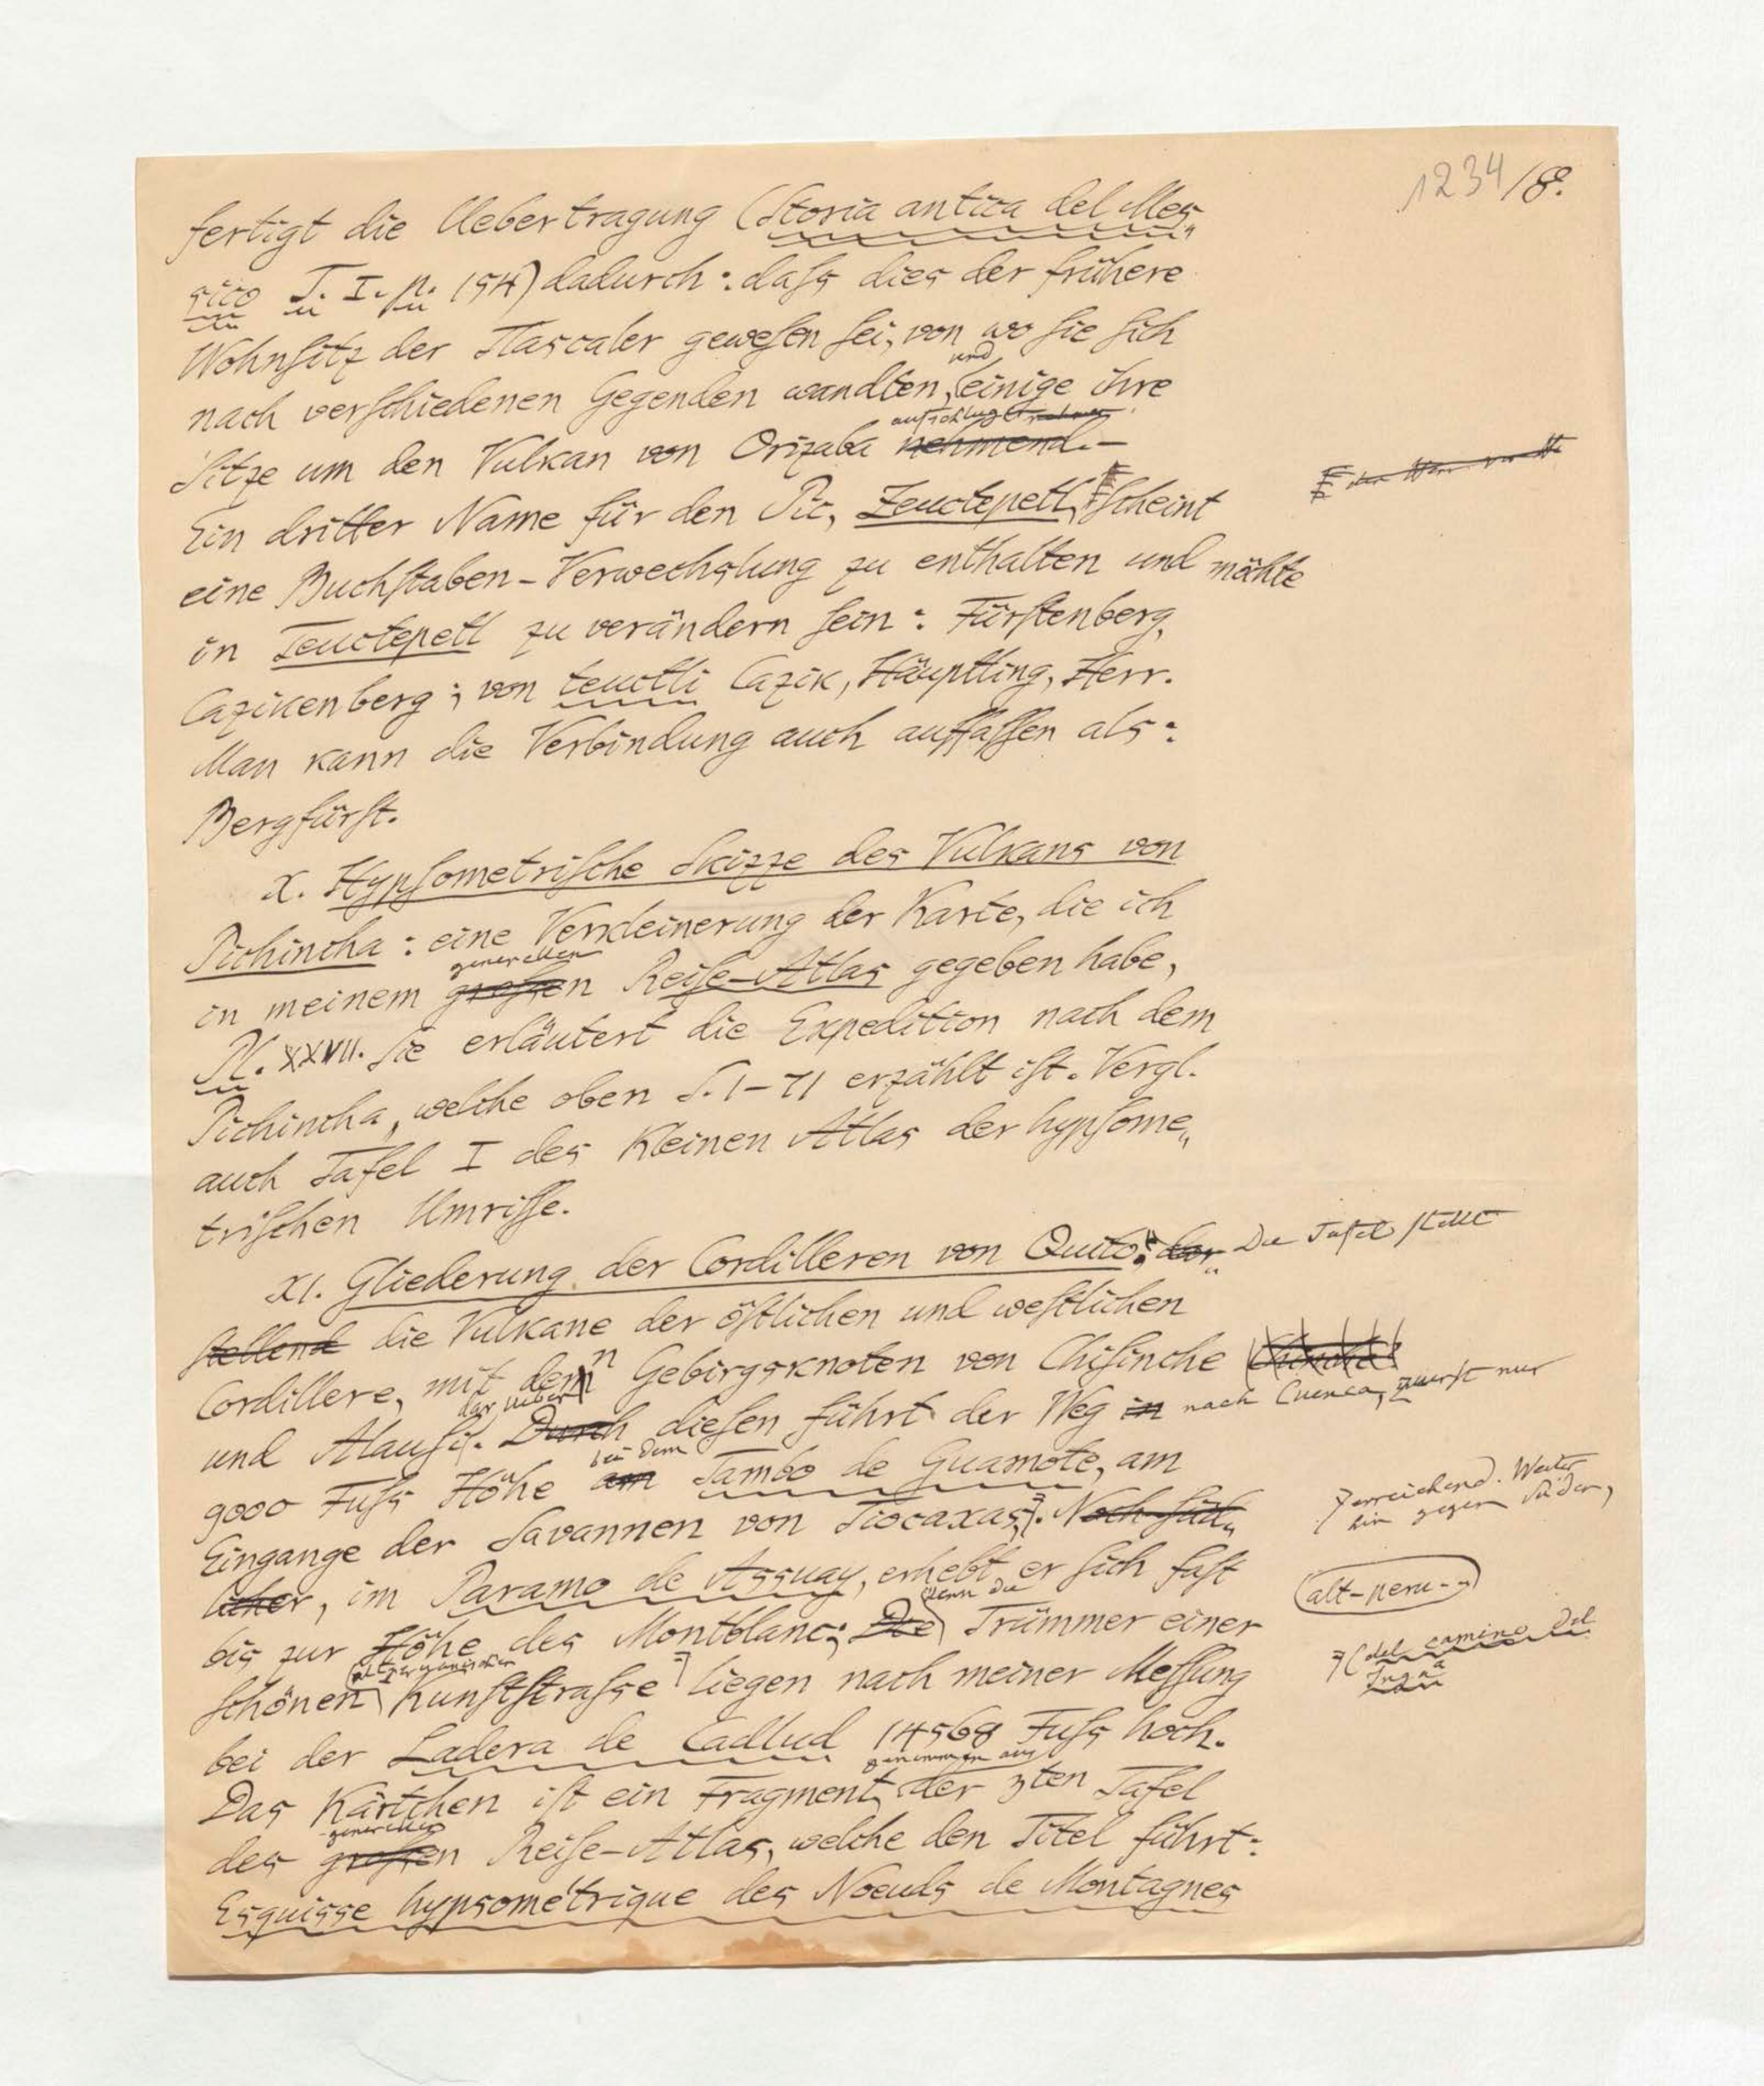 1234/8.
fertigt die Uebertragung (Storia antica del Mes„
sico T. I. p. 154) dadurch: daſs dies der frühere
Wohnſitz der Tlascaler geweſen ſei, von wo ſie ſich
nach verſchiedenen Gegenden wandten, und einige ihre
Sitze um den Vulkan von Orizaba aufschlugen nehmend.—
Ein dritter Name für den Pic, Zeuctepetl, ſcheint
eine Buchſtaben-Verwechslung zu enthalten und möchte
in Teuctepetl zu verändern ſein: Fürſtenberg,
Cazikenberg; von teuctli Cazik, Häuptling, Herr.
Man kann die Verbindung auch auffaſſen als:
Bergfürſt.
X. Hypſometriſche Skizze des Vulkans von
Pichincha: eine Verkleinerung der Karte, die ich
in meinem generellen großen Reiſe-Atlas gegeben habe,
Pl. XXVII. Sie erläutert die Expedition nach dem
Pichincha, welche oben S. 1–71 erzählt iſt. Vergl.
auch Tafel I des Kleinen Atlas der hypſome„
triſchen Umriſſe.
XI. Gliederung der Cordilleren von Quito: dar„ Die Tafel ſtellt
ſtellend die Vulkane der öſtlichen und weſtlichen
Cordillere, mit den Gebirgsknoten von Chiſinche
und Alauſi. Durch darüber dieſen führt der Weg in nach Cuenca, zuerst nur
9000 Fuſs Höhe am bei dem Tambo de Guamote, am
Eingange der Savannen von Tiocaxas. Noch ſüd„ erreichend. Weiter
hin gegen Süden,
licher, im Paramo de Assuay, erhebt er ſich faſt
bis zur Höhe des Montblanc; Die denn die Trümmer einer alt-peru-
ſchönen altperuanischen Kunſtſtraſse liegen nach meiner Meſſung (del camino del
Inga
bei der Ladera de Cadlud 14568 Fuſs hoch.
Das Kärtchen iſt ein Fragment, genommen aus der 3ten Tafel
des großen generellen Reiſe-Atlas, welche den Titel führt:
Esquisse hypsométrique des Noeuds de Montagnes